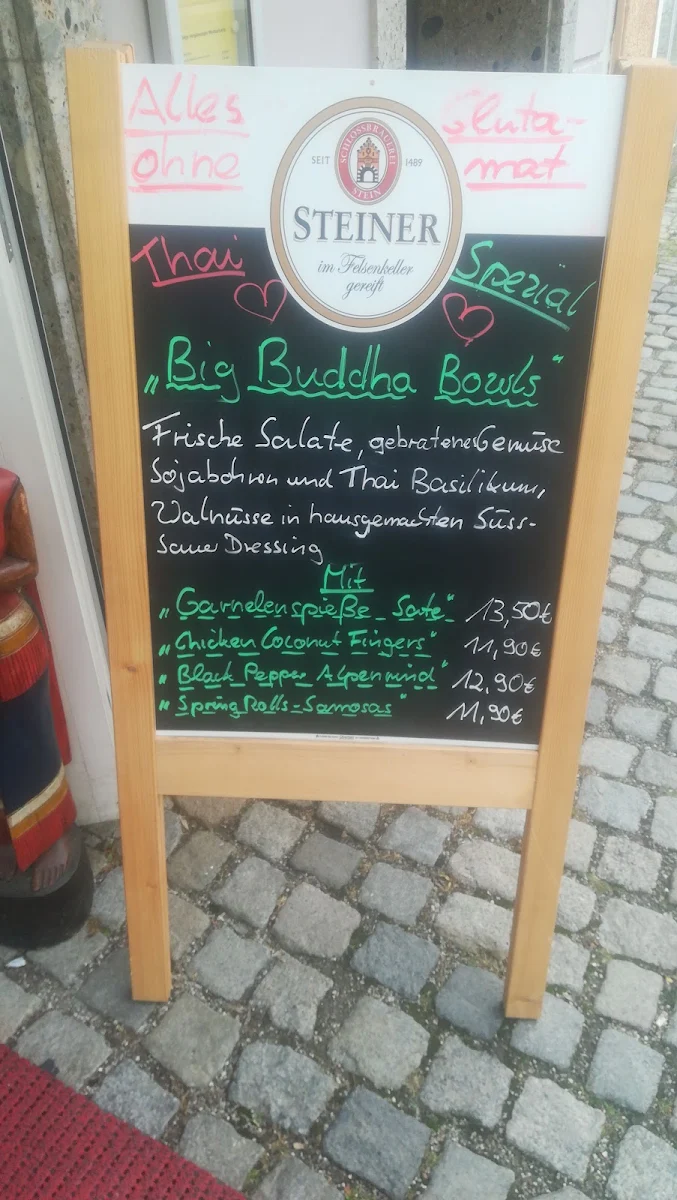 Alles
ohne
Gluta-
mat
SCHLOSSBRAUEREI
STEIN
SEIT 1489
STEINER
im Felsenkeller
gereift
Thai Spezial
„Big Buddha Bowls“
Frische Salate, gebratenes Gemüse
Sojabohnen und Thai Basilikum,
Walnüsse in hausgemachten Süss-
Sauer Dressing
Mit
„Garnelenspieße - Sate“ 13,50€
„Chicken Coconut Fingers“ 11,90€
„Black Pepper Alpenrind“ 12,90€
„Spring Rolls - Samosas“ 11,90€